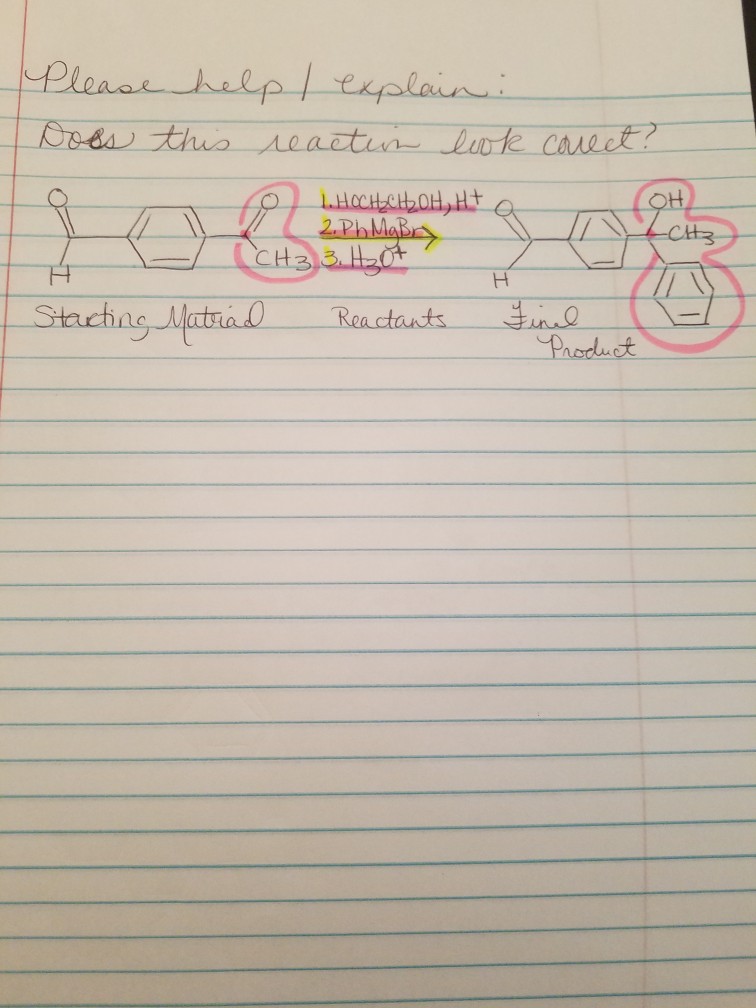 Please help / explain:
Does this reaction look correct?
O
H
O
CH3
1. HOCH2CH2OH, H+
2. PhMgBr
3. H3O+
O
H
OH
CH3
Starting Matrial
Reactants
Final
Product